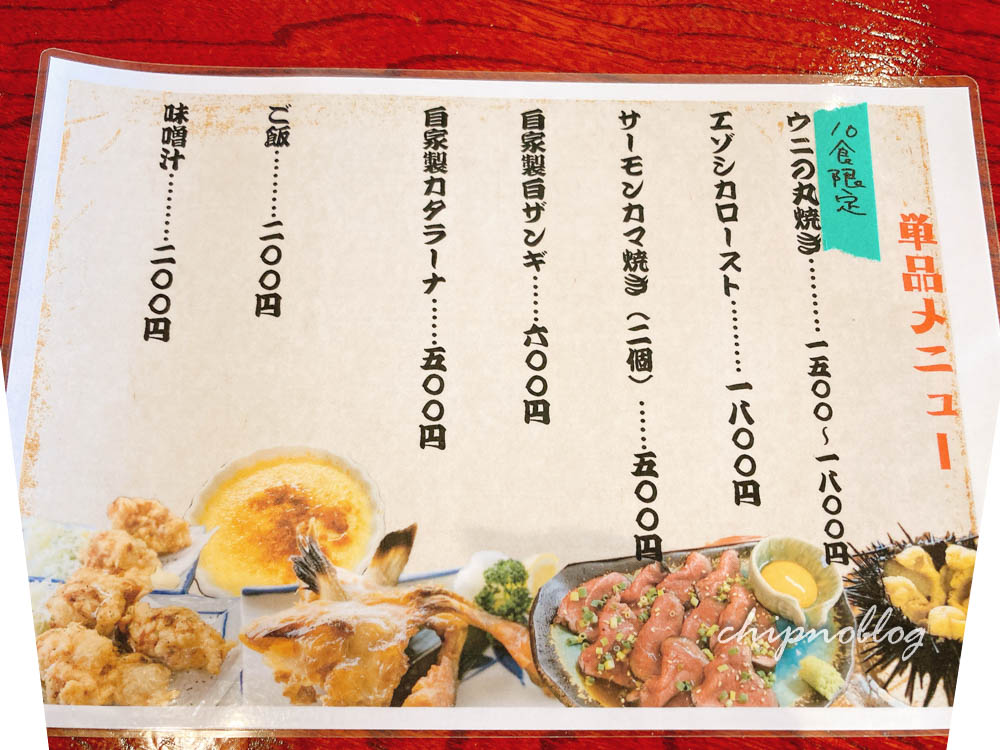 単品メニュー
10食限定
ウニの丸焼き………一五〇〇～一八〇〇円
エゾシカロースト…………一八〇〇円
サーモンカマ焼き（二個）……五〇〇円
自家製白ザンギ……六〇〇円
自家製カタラーナ……五〇〇円
ご飯………二〇〇円
味噌汁………二〇〇円
chipnoblog